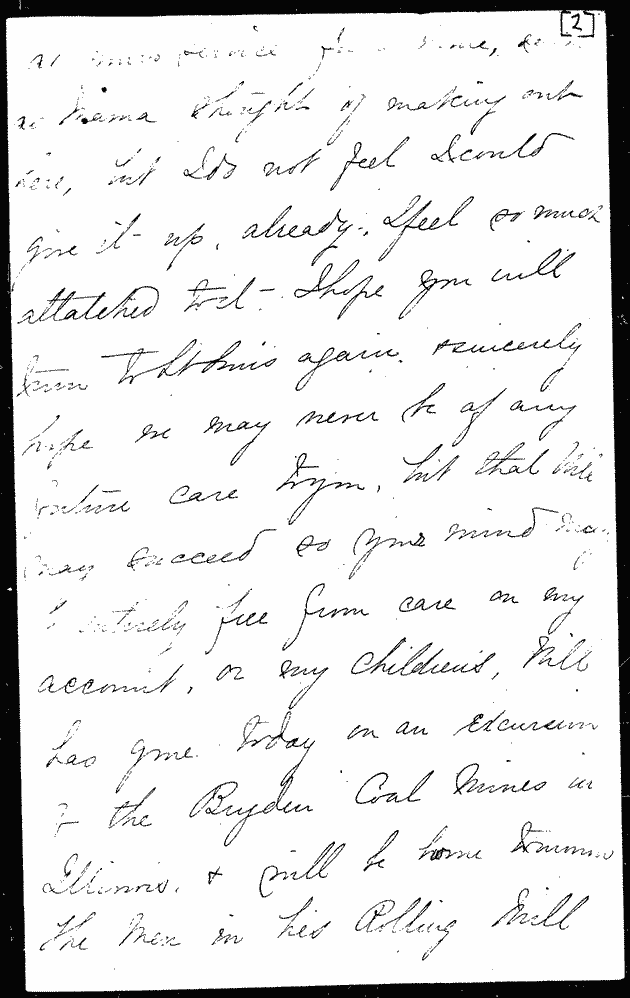 [2]
at your service for a time, so
as Mama thought of making out
here, but I do not feel I could
give it up, already, I feel so much
attatched to it - I hope you will
turn to St Louis again. & sincerely
hope we may never be of any
future care to you, but that Will
may succeed so your mind may
be entirely free from care on my
account, or my children's, Will
has gone today on an excursion
to the Bryden Coal Mines in
Illinois. & will be home tomorrow
the Men in his Rolling Mill